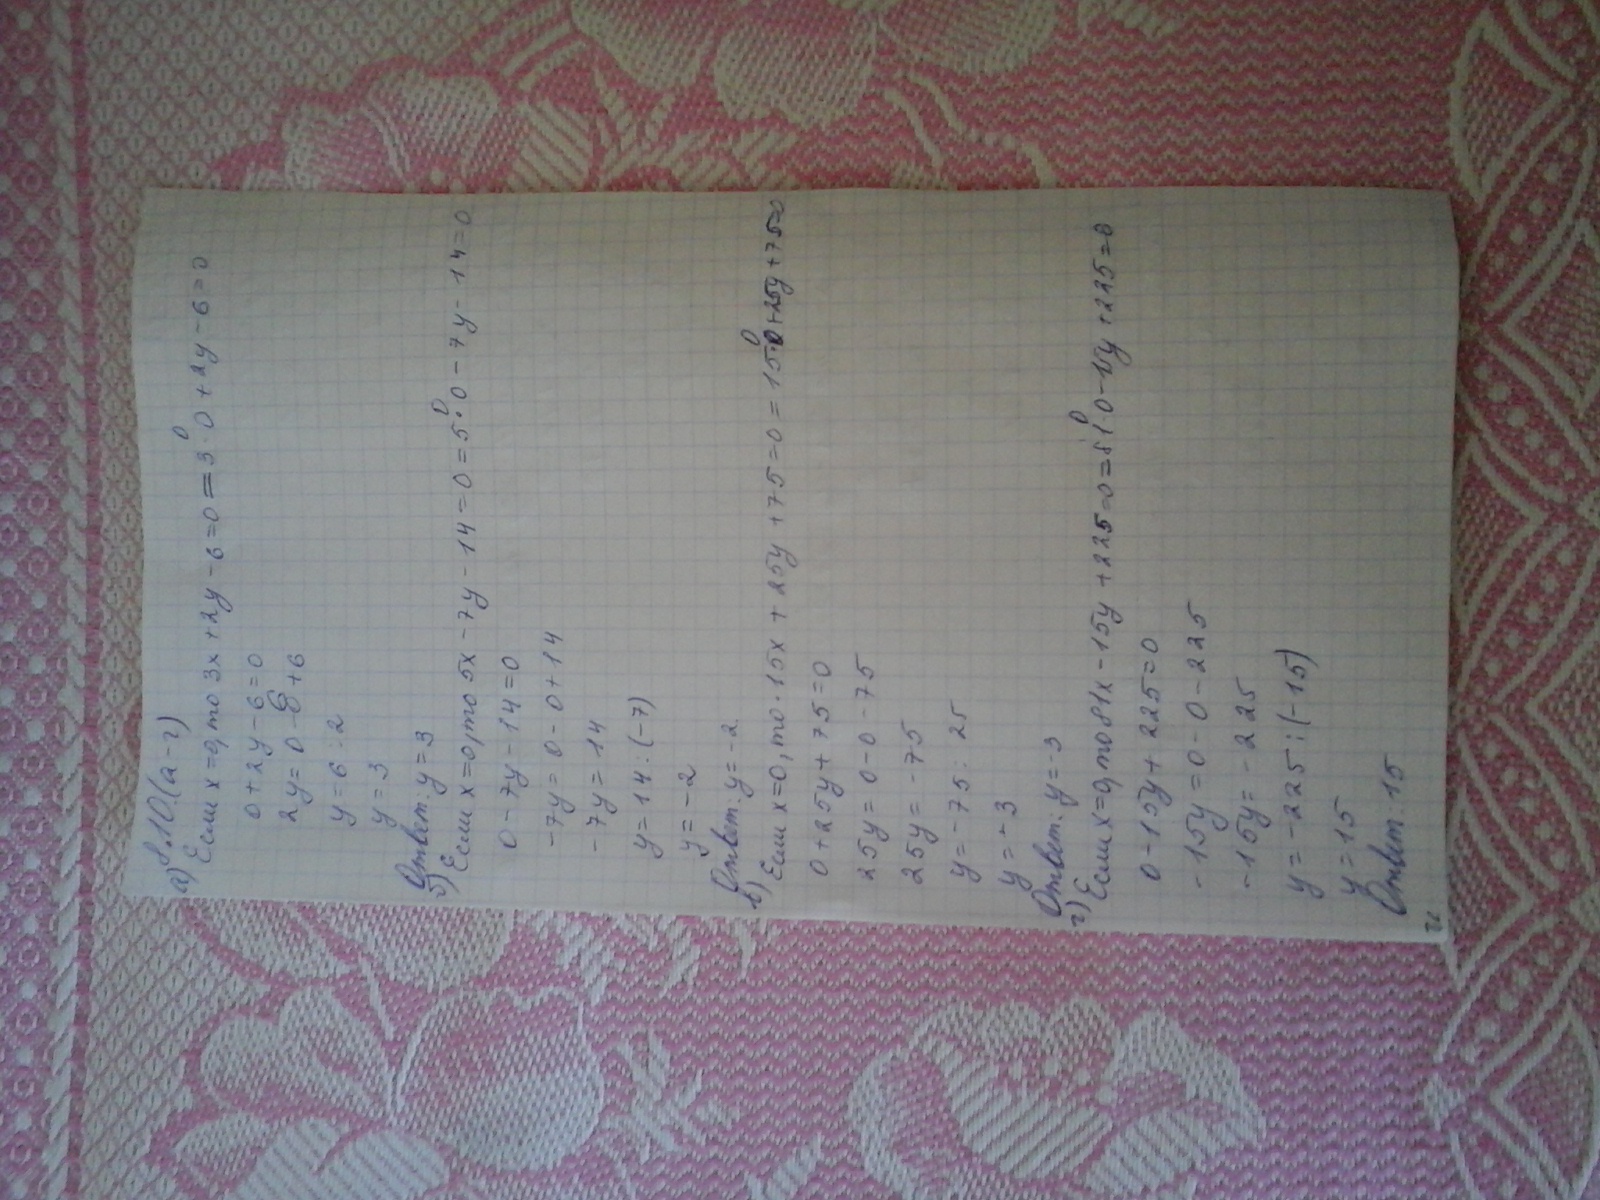 8.10.(а-г)
а) Если x=0, то 3x+2y-6=0=3·0+2y-6=0
0
0+2y-6=0
2y=0-0+6
y=6:2
y=3
Ответ: y=3
б) Если x=0, то 5x-7y-14=0=5·0-7y-14=0
0
0-7y-14=0
-7y=0-0+14
-7y=14
y=14:(-7)
y=-2
Ответ: y=-2
в) Если x=0, то 15x+25y+75=0=15·0+25y+75=0
0
0+25y+75=0
25y=0-0-75
25y=-75
y=-75:25
y=-3
Ответ: y=-3
г) Если x=0, то 81x-15y+225=0=81·0-15y+225=0
0
0-15y+225=0
-15y=0-0-225
-15y=-225
y=-225:(-15)
y=15
Ответ: 15